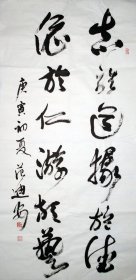 志於道據於德
依於仁游於藝
庚寅初夏范迪安